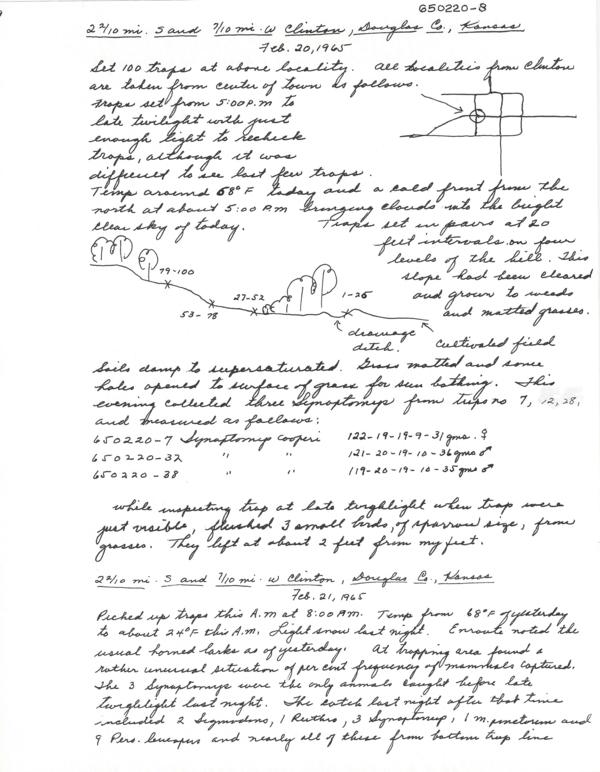 650220-8
2 2/10 mi. S and 7/10 mi. W Clinton, Douglas Co., Kansas
Feb. 20, 1965
Set 100 traps at above locality. All localities from Clinton
are taken from center of town as follows.
traps set from 5:00 P.m to
late twilight with just
enough light to recheck
traps, although it was
difficult to see last few traps.
Temp around 68°F today and a cold front from the
north at about 5:00 P.M bringing clouds into the bright
clear sky of today. Traps set in pairs at 20
feet intervals on four
levels of the hill. This
slope had been cleared
and grown to weeds
and matted grasses.
79-100
53-78
27-52
1-26
drainage
ditch.
cultivated field
Soils damp to supersaturated. Grass matted and some
holes opened to surface of grass for sun bathing. This
evening collected three Synaptomys from traps no 7, 12, 28,
and measured as follows:
650220-7 Synaptomys cooperi 122-19-19-9-31 gms. ♀
650220-32 " " 121-20-19-10-36 gms ♂
650220-38 " " 119-20-19-10-35 gms ♂
while inspecting trap at late twighlight when trap were
just visible, flushed 3 small birds, of sparrow size, from
grasses. They left at about 2 feet from my feet.
2 2/10 mi. S and 7/10 mi. W Clinton, Douglas Co., Kansas
Feb. 21, 1965
Picked up traps this A.m at 8:00 AM. Temp from 68°F of yesterday
to about 24°F this A.M. Light snow last night. Enroute noted the
usual horned larks as of yesterday. At trapping area found a
rather unusual situation of per cent frequency of mammals captured.
The 3 Synaptomys were the only animals caught before late
twighlight last night. The catch last night after that time
included 2 Sigmodons, 1 Reithro, 3 Synaptomys, 1 M. pinetorum and
9 Pero. leucopus and nearly all of these from bottom trap line